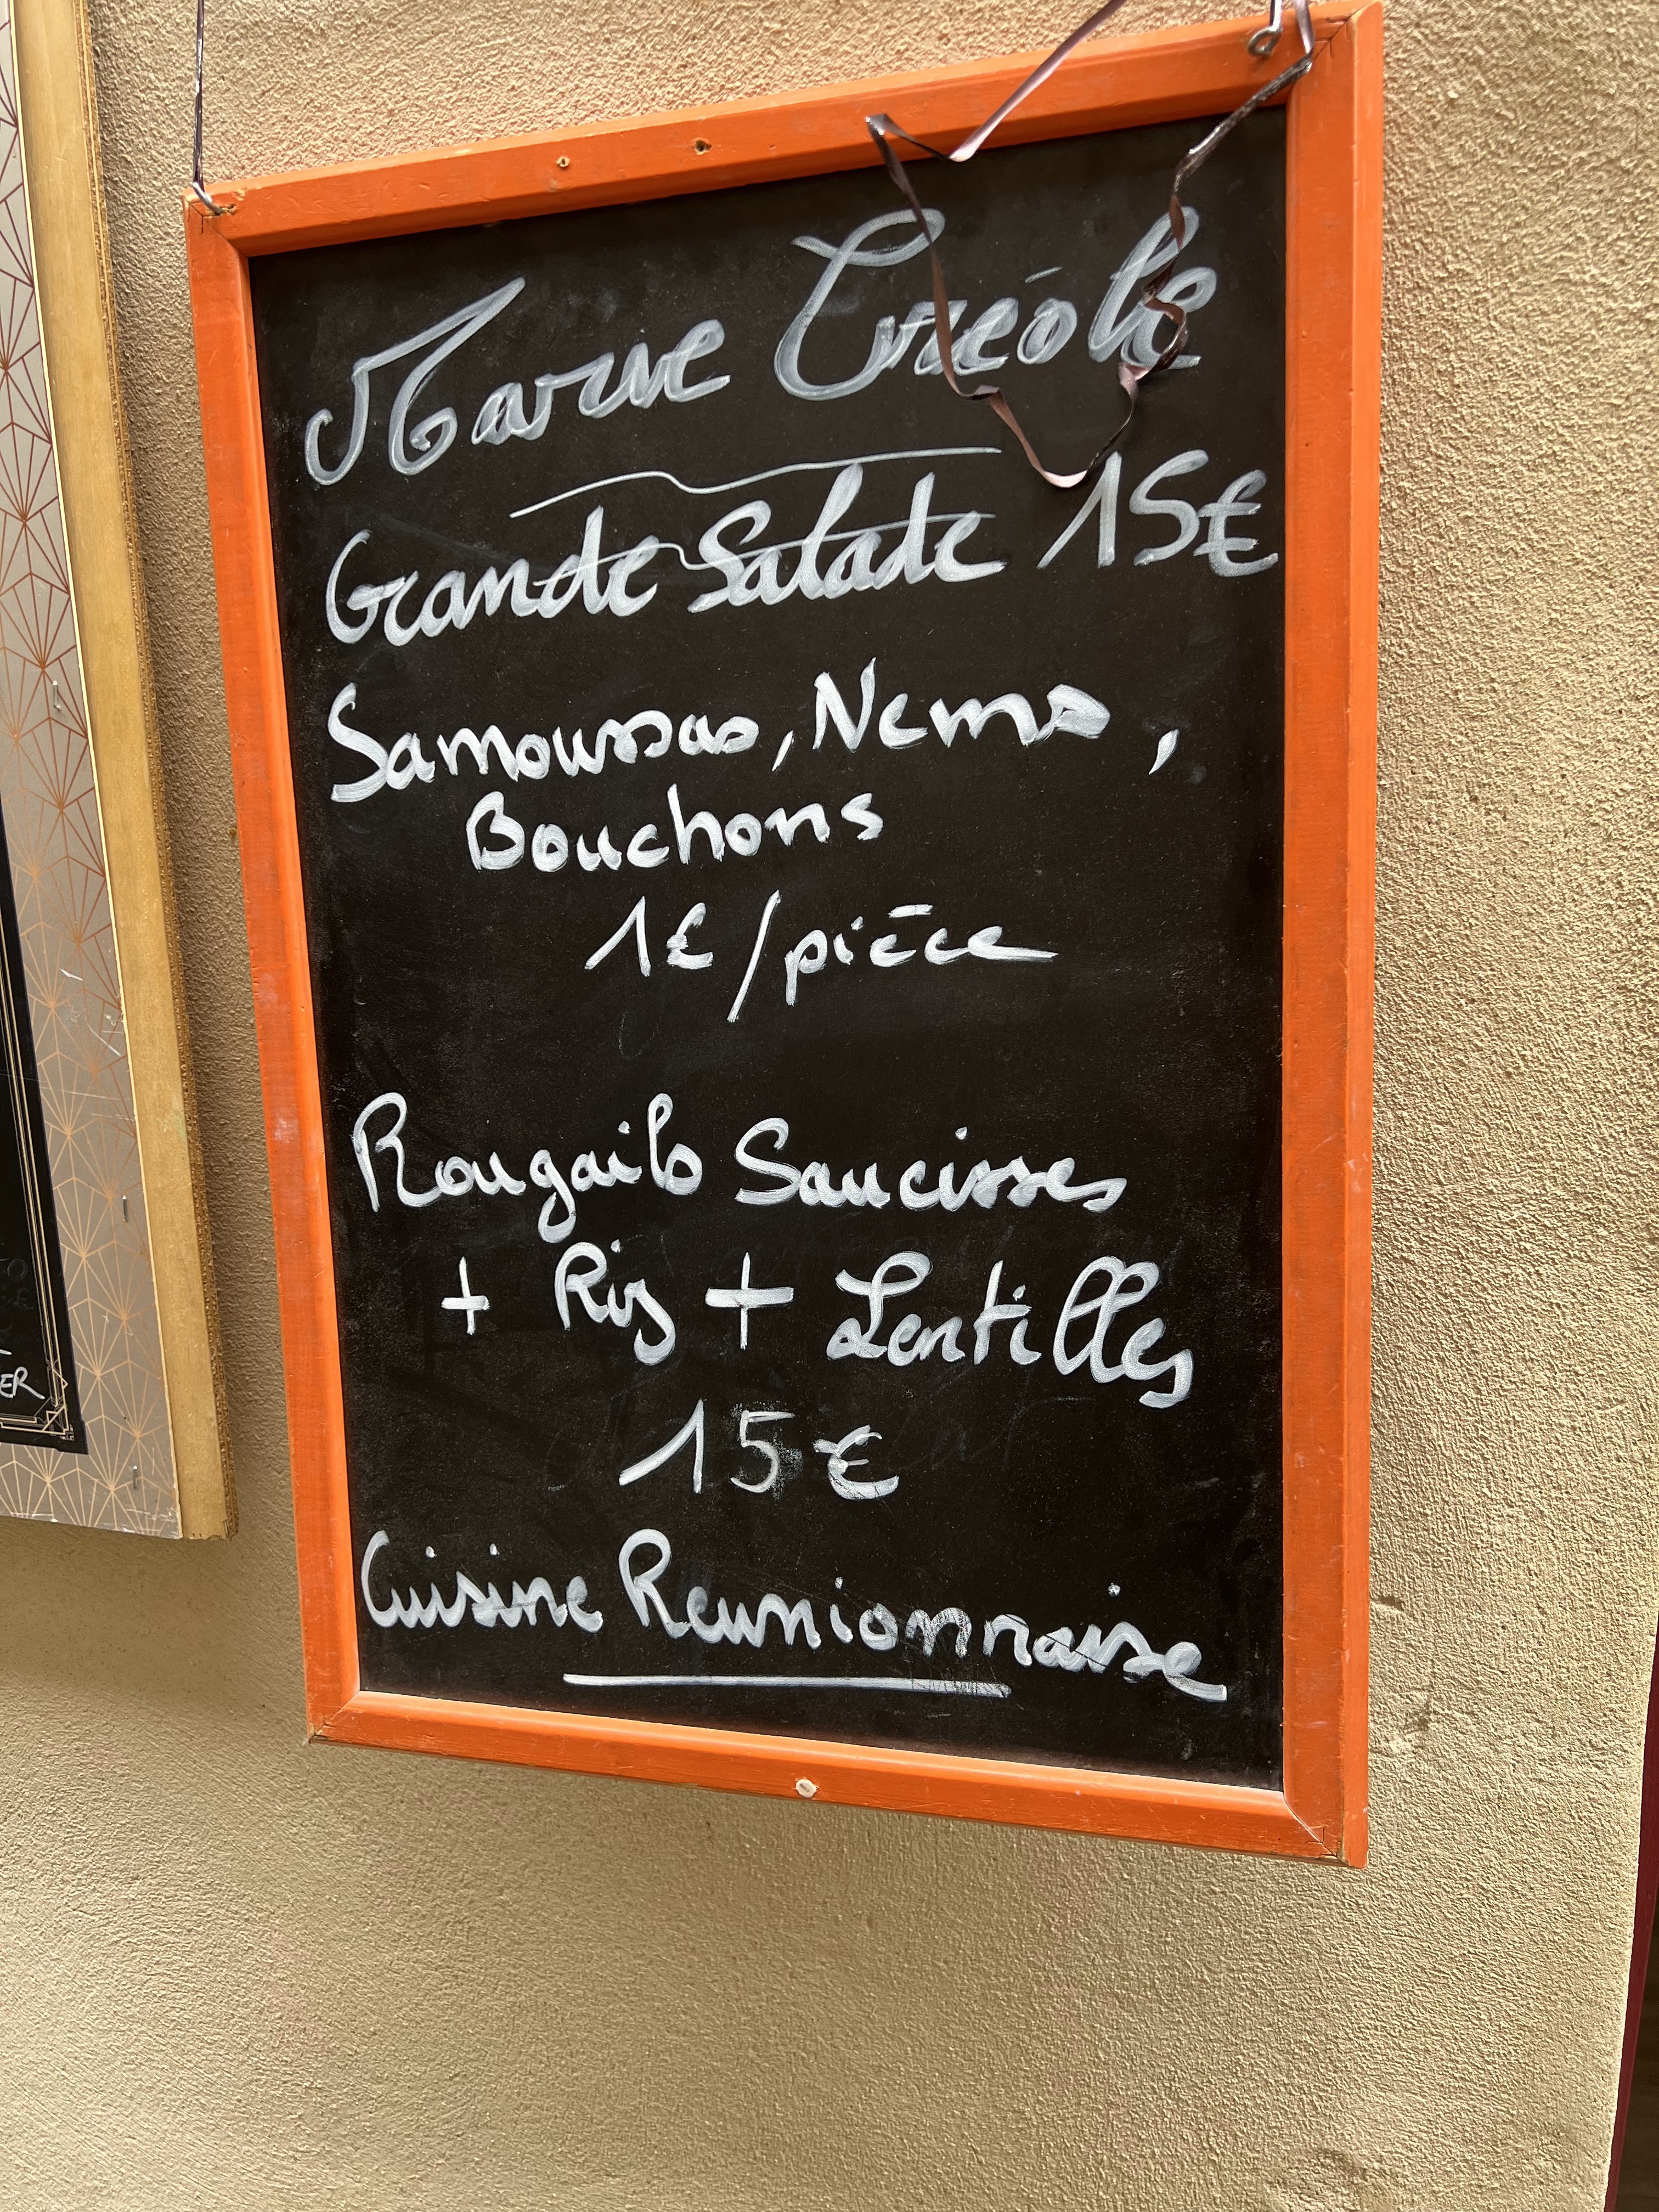 Marie Créole
Grande Salade 15€
Samoussas, Nems,
Bouchons
1€/pièce
Rougails Saucisses
+ Riz + Lentilles
15€
Cuisine Reunionnaise
ER